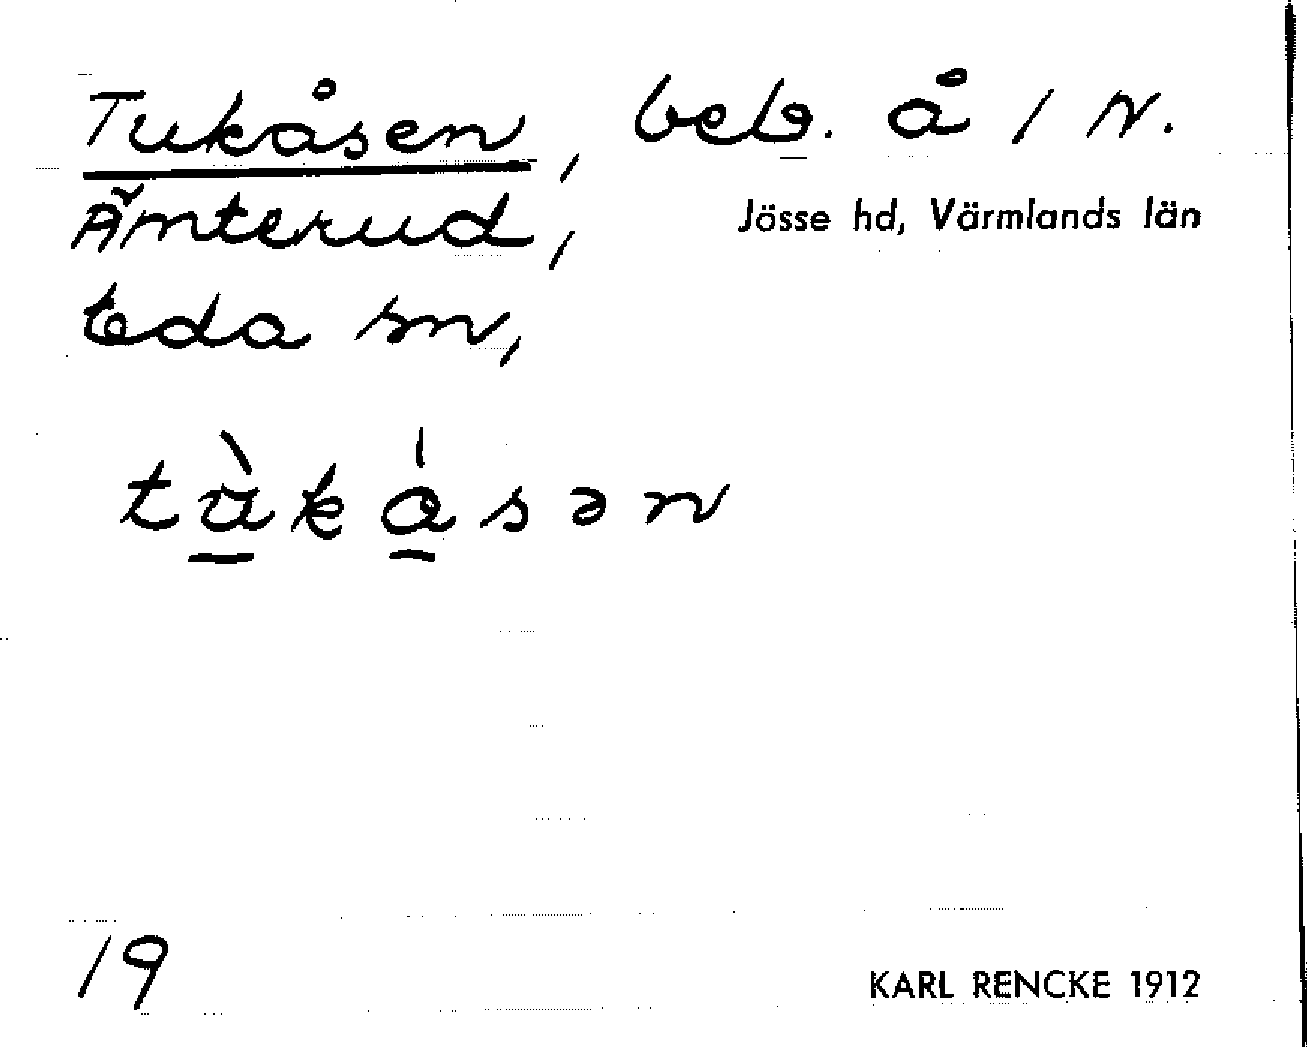 Tukåsen, beb. å 1/N.
Ämterud,
Jösse hd, Värmlands län
Eda sn,
tù̠ká̠sən
19
KARL RENCKE 1912